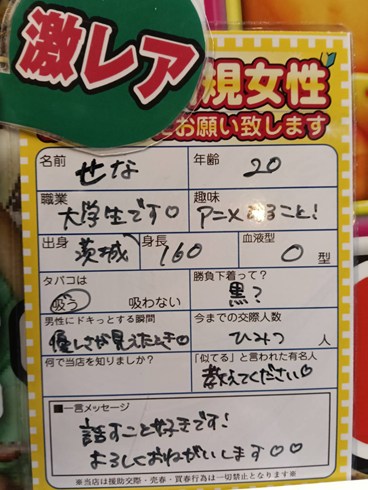 激レア
規女性
お願い致します
名前 せな 年齢 20
職業 大学生です♡ 趣味 アニメみること!
出身 茨城 身長 160 血液型 O 型
タバコは 吸う 吸わない
勝負下着って? 黒?
男性にドキっとする瞬間 優しさが見えたとき♡
今までの交際人数 ひみつ 人
何で当店を知りましたか?
「似てる」と言われた有名人 教えてください♡
■一言メッセージ
話すこと好きです!
よろしくおねがいします♡♡
※当店は援助交際・売春・買春行為は一切禁止となります※